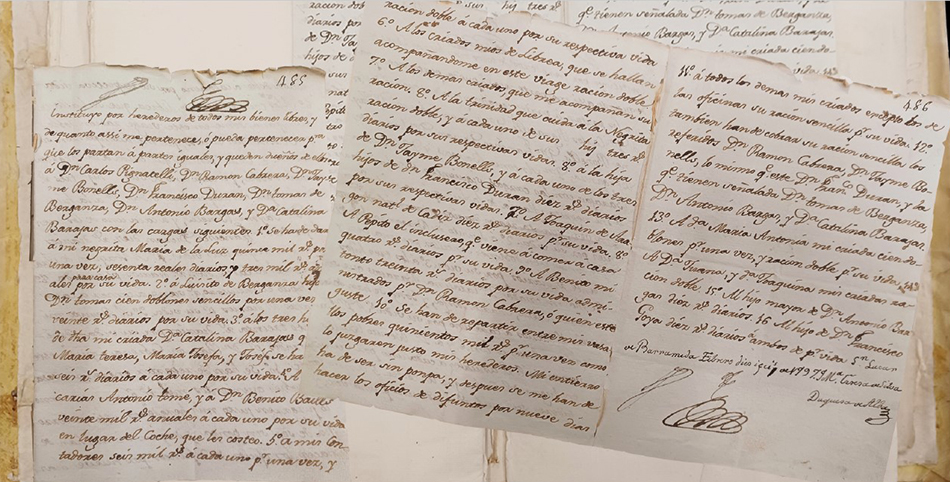 485
Instituyo por herederos de todos mis bienes libres, y
de quanto assi me pertenece, ó pueda pertenecer pa.
que los partan á partes iguales, y queden dueños de ellos
á Dn. Carlos Pignatelli, Dn. Ramon Cabrera, Dn. Tay-
me Bonells, Dn. Francisco Duran, Dn. tomas de
Berganza, Dn. Antonio Bargas, y Da. Catalina
Barajas con las cargas siguientes. 1º se ha de dar
á mi negrita Maria de la Luz quince mil rs. por
una vez, sesenta reales diarios
ales por su vida. 2º á Luisito de Berganza hijo
Dn. tomas cien doblones sencillos por una vez
veinte rs. diarios por su vida. 3º á los tres h
de dha. mi criada Da. Catalina Barajas q
Maria teresa, Maria Josefa, y Josef se ha
seis rs. diarios á cada uno por su vida.
carias Antonio tomé, y á Dn. Benito Bails
veinte mil rs. anuales á cada uno por su vida
en lugar del Coche, que les costeo. 5º á mis Con-
tadores seis mil rs. á cada uno pr. una vez, y
racion doble á cada uno por su respectiva vida
6º A los criados mios de Librea, que se hallan
acompañandome en este viage racion doble.
7º A los demas criados, que me acompañan su
racion. 8º A la trinidad que cuida á la Negrita
racion doble, y á cada uno de sus hijos tres rs.
diarios por sus respectivas vidas. 8º á la hija
de Dn. Tayme Bonells, y á cada uno de los tres
hijos de Dn. Francisco Duran diez rs. diarios
por sus respectivas vidas. A Joaquin de Ara-
gon nat. de Cadiz diez rs. diarios pr. su vida. 8º
A Pepito el inclusero, que viene á comer á casa
quatro rs. diarios pr. su vida. 9º A Benito mi
tonto treinta rs. diarios por su vida admi-
nistrados pr. Dn. Ramon Cabrera, ó quien este
guste. 10º Se han de repartir entre mis vera
llos pobres quinientos mil rs. pr. una vez como
lo juzgaren justo mis herederos. Mi entierro
ha de ser sin pompa, y despues se me han de
hacer los oficios de difuntos por nueve dias
486
11º á todos los demas mis criados, empleados de
las oficinas su racion sencilla pr. su vida. 12º
tambien han de cobrar su racion sencilla los
referidos Dn. Ramon Cabrera, Dn. Tayme Bo-
nells, lo mismo q. este Dn. Franco. Duran, y la
q. tienen señalada Dn. tomas de Berganza,
Dn. Antonio Bargas, y Da. Catalina Barajas.
13º A Da. Maria Antonia mi criada cien do-
blones pr. una vez, y racion doble pr. su vida.
A Da. Juana, y Da. Joaquina mis criadas ra-
cion doble. 15º Al hijo mayor de Dn. Antonio Bar-
gas diez rs. diarios. 16 Al hijo de Dn. Francisco
Goya diez rs. diarios á ambos de pr. vida Sn. Lucar
de Barrameda Febrero diez i seis de 1797 = Ma. Teresa de Silva
Duquesa de Alba